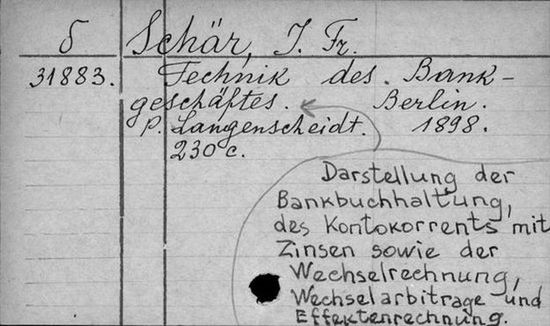 δ Schär, J. Fr.
31883. Technik des Bank-
geschäftes. Berlin.
P. Langenscheidt. 1898.
230 c.
Darstellung der
Bankbuchhaltung,
des Kontokorrents mit
Zinsen sowie der
Wechselrechnung,
Wechselarbitrage und
Effektenrechnung.